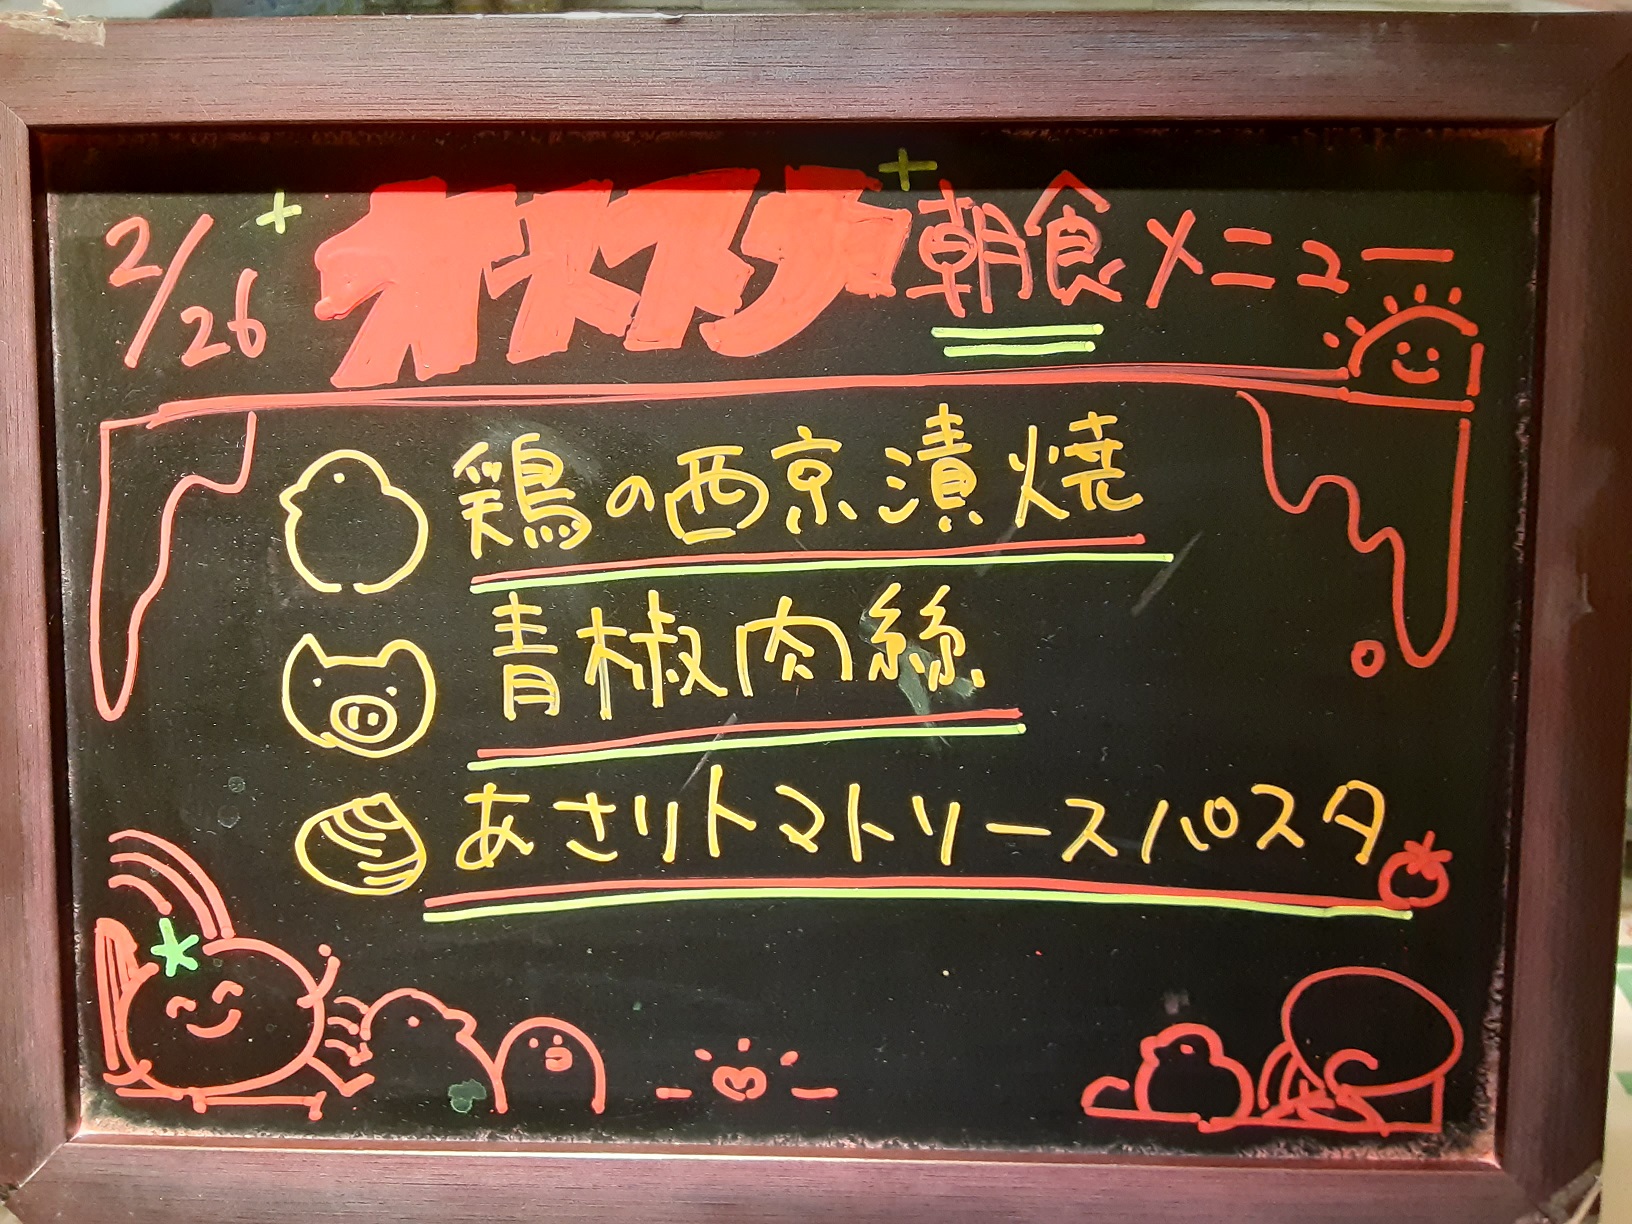 2/26 オススメ 朝食メニュー
鶏の西京漬焼
青椒肉絲
あさりトマトソースパスタ